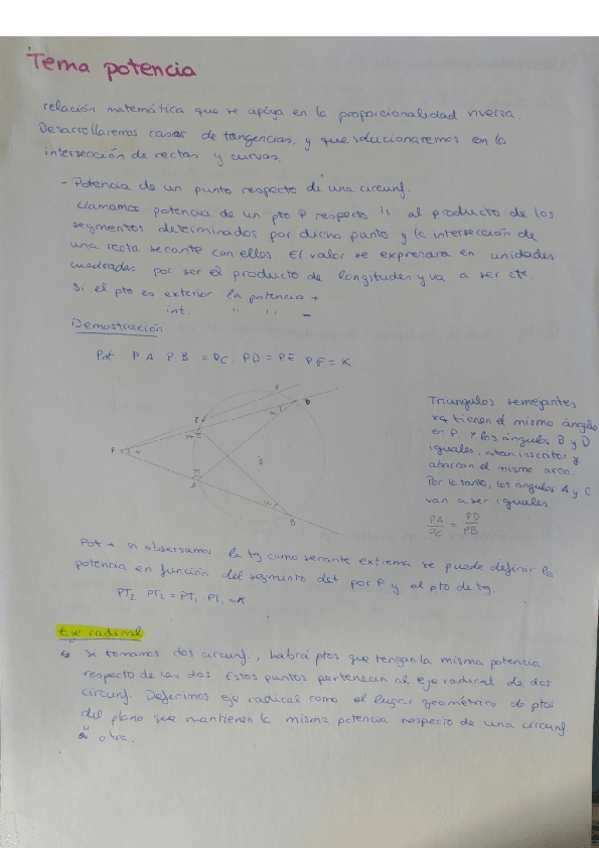 Tema potencia
relación matemática que se apoya en la proporcionalidad inversa.
Desarrollaremos casos de tangencias, y que solucionaremos en la
intersección de rectas y curvas.
- Potencia de un punto respecto de una circunf.
Llamamos potencia de un pto P respecto " al producto de los
segmentos determinados por dicho punto y la intersección de
una recta secante con ellos El valor se expresara en unidades
cuadradas por ser el producto de longitudes y va a ser cte
Si el pto es exterior la potencia +
int. " " -
Demostración
Pot PA PB = PC. PD = PE PF = K
P
A
B
D
E
F
Triangulos semejantes
tienen el mismo ángulo
en P, y los ángulos B y D
iguales, inscritos y
abarcan el mismo arco.
Por lo tanto, los angulos A y C
van a ser iguales
PA/PC = PD/PB
Pot + si observamos la tg como secante extrema se puede definir la
potencia en función del segmento det por P y el pto de tg.
PT2 PT2 = PT1 PT1 = K
Eje radical
Si tomamos dos circunf., habrá ptos que tengan la misma potencia
respecto de las dos Estos puntos pertenecen al eje radical de dos
circunf. Definimos eje radical como el lugar geométrico de ptos
del plano que mantienen la misma potencia respecto de una circunf.
u otra.